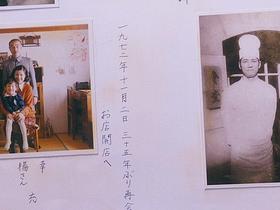 一九七二年十一月二日 三十五年ぶり再会
お店開店へ
幸 充
橋さん